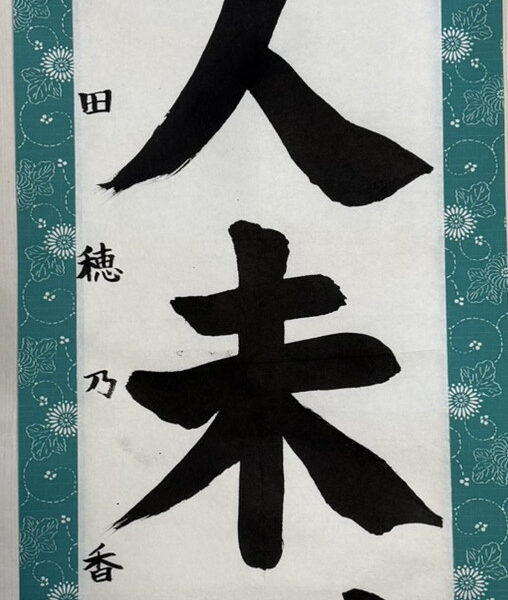 人未
田穂乃香